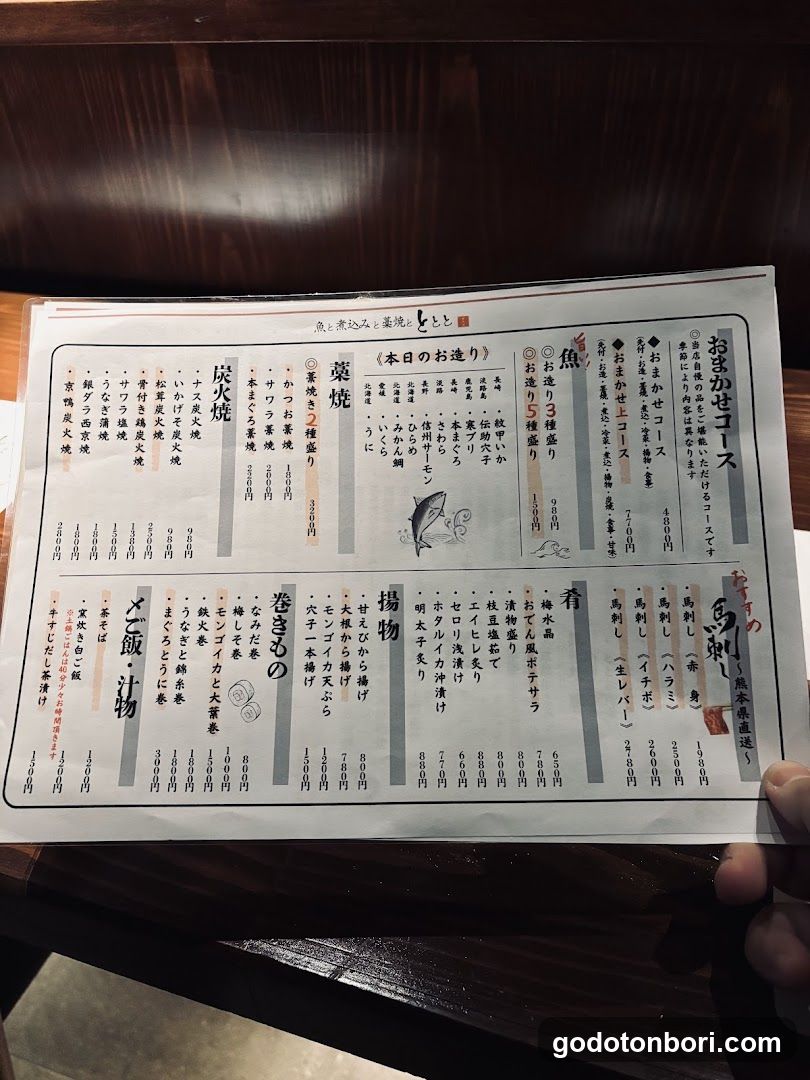 魚と煮込みと藁焼と ととと
おまかせコース
◎当店自慢の品をご堪能いただけるコースです
季節により内容は異なります
◆おまかせコース 4800円
(先付・お造・藁焼・煮込・冷菜・揚物・食事)
◆おまかせ上コース 7700円
(先付・お造・藁焼・煮込・冷菜・煮込・揚物・炭焼・食事・甘味)
旨い!
魚
◎お造り3種盛り 980円
◎お造り5種盛り 1500円
《本日のお造り》
長崎・紋甲いか
淡路島・伝助穴子
鹿児島・寒ブリ
長崎・本まぐろ
淡路・さわら
長野・信州サーモン
北海道・ひらめ
愛媛・みかん鯛
北海道・いくら
北海道・うに
藁焼
◎藁焼き2種盛り 3200円
・かつお藁焼 1800円
・サワラ藁焼 2000円
・本まぐろ藁焼 2200円
炭火焼
・ナス炭火焼 980円
・いかげそ炭火焼 980円
・松茸炭火焼 2500円
・骨付き鶏炭火焼 1380円
・サワラ塩焼 1500円
・うなぎ蒲焼 1800円
・銀ダラ西京焼 1800円
・京鴨炭火焼 2800円
おすすめ
馬刺し〜熊本県直送〜
・馬刺し《赤身》 1980円
・馬刺し《ハラミ》 2500円
・馬刺し《イチボ》 2600円
・馬刺し《生レバー》 2780円
肴
・梅水晶 650円
・おでん風ポテサラ 780円
・漬物盛り 800円
・枝豆塩茹で 800円
・エイヒレ炙り 880円
・セロリ浅漬け 660円
・ホタルイカ沖漬け 770円
・明太子炙り 880円
揚物
・甘えびから揚げ 800円
・大根から揚げ 780円
・モンゴイカ天ぷら 1200円
・穴子一本揚げ 1500円
巻きもの
・なみだ巻 800円
・梅しそ巻 1000円
・モンゴイカと大葉巻 1500円
・鉄火巻 1800円
・うなぎと錦糸巻 1800円
・まぐろとうに巻 3000円
〆ご飯・汁物
・茶そば 1200円
・窯炊き白ご飯 1200円
※土鍋ごはんは40分少々お時間頂きます
・牛すじだし茶漬け 1500円
godotonbori.com